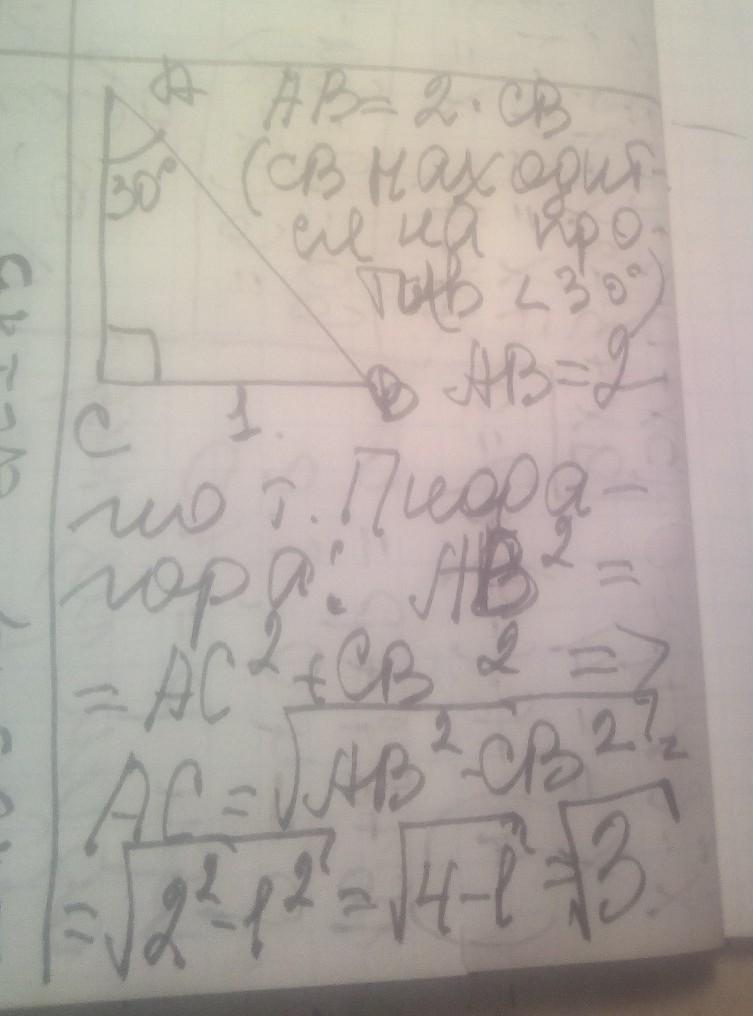 A AB = 2 · CB
30° (CB находит-
ся на про-
тив < 30°)
B AB = 2
C 1
по т. Пифа-
гора: AB² =
= AC² + CB² =>
AC = √AB² - CB² =
= √2² - 1² = √4 - 1 = √3